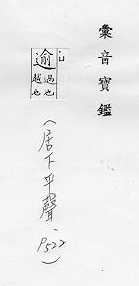 彙音寶鑑
逾
過也
越也
(居下平聲、P522)